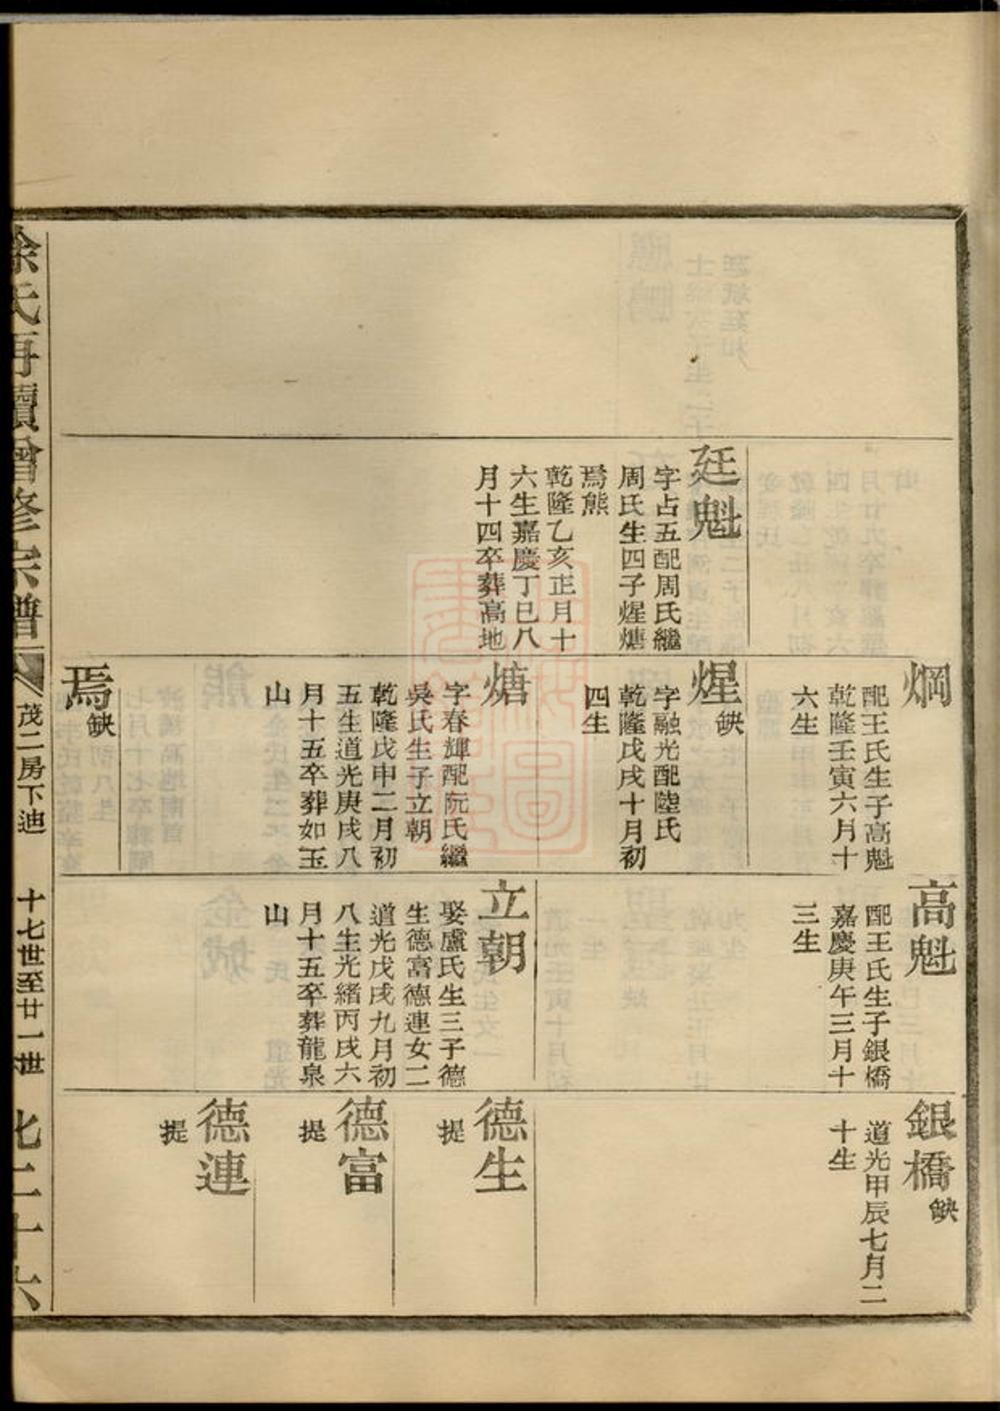 廷魁
字占五配周氏繼
周氏生四子煋煻
焉熊
乾隆乙亥正月十
六生嘉慶丁巳八
月十四卒葬高地
焵
配王氏生子高魁
乾隆壬寅六月十
六生
煋
缺
字融光配陸氏
乾隆戊戌十月初
四生
煻
字春輝配阮氏繼
吳氏生子立朝
乾隆戊申二月初
五生道光庚戌八
月十五卒葬如玉
山
焉
缺
高魁
配王氏生子銀橋
嘉慶庚午三月十
三生
立朝
娶盧氏生三子德
生德富德連女二
道光戊戌九月初
八生光緒丙戌六
月十五卒葬龍泉
山
銀橋
缺
道光甲辰七月二
十生
德生
提
德富
提
德連
提
徐氏再續增修宗譜
茂二房下迪
十七世至廿一世
二十六